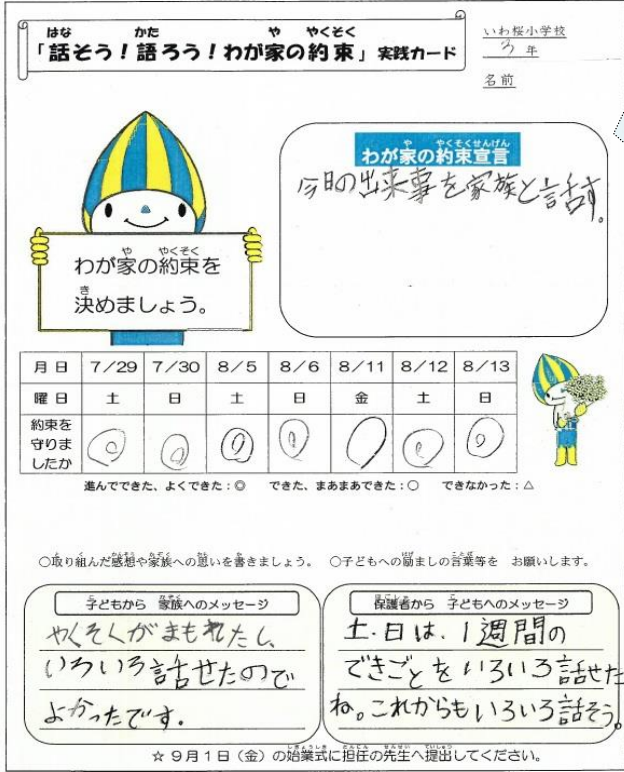 「話そう！語ろう！わが家の約束」実践カード
いわ桜小学校
3年
名前
わが家の約束宣言
今日の出来事を家族と話す。
わが家の約束を
決めましょう。
月日 7/29 7/30 8/5 8/6 8/11 8/12 8/13
曜日 土 日 土 日 金 土 日
約束を守りましたか ◎ ◎ ◎ ◎ ○ ◎ ◎
進んでできた、よくできた：◎ できた、まあまあできた：○ できなかった：△
○取り組んだ感想や家族への思いを書きましょう。 ○子どもへの励ましの言葉等を お願いします。
子どもから 家族へのメッセージ
やくそくがまもれたし、
いろいろ話せたので
よかったです.
保護者から 子どもへのメッセージ
土.日は、1週間の
できごとをいろいろ話せた
ね。これからもいろいろ話そう。
☆9月1日（金）の始業式に担任の先生へ提出してください。